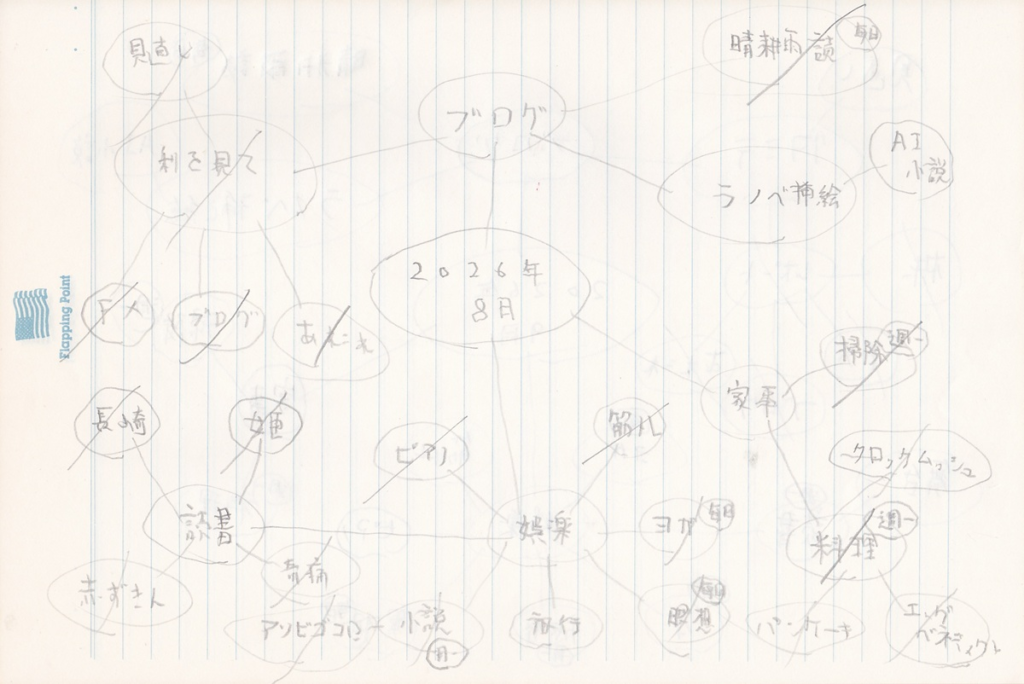 見直し
晴耕雨読
毎日
ブログ
利を見て
AI
小説
ラノベ挿絵
2026年
8月
Flapping Point
ブログ
掃除
週一
家事
長崎
姫
ピアノ
筋トレ
クロックムッシュ
読書
娯楽
ヨガ
毎日
料理
週一
赤ずきん
毎日
アソビゴコロ
小説
週一
旅行
瞑想
パンケーキ
エッグ
ベネディクト